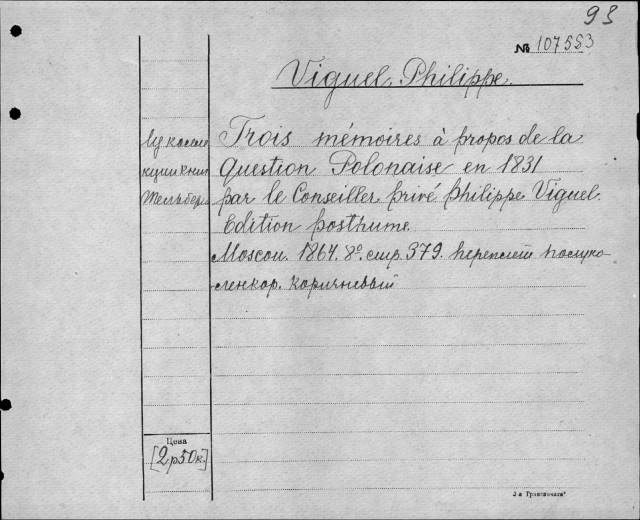 93
№ 107553
Viguel, Philippe.
Trois mémoires à propos de la
Question Polonaise en 1831
par le Conseiller privé Philippe Viguel.
Edition posthume
Moscou. 1864. 8º. стр. 379. переплет полуко-
ленкор. коричневый
Из коллек
ции Книп
Цена
[2 р 50 к.]